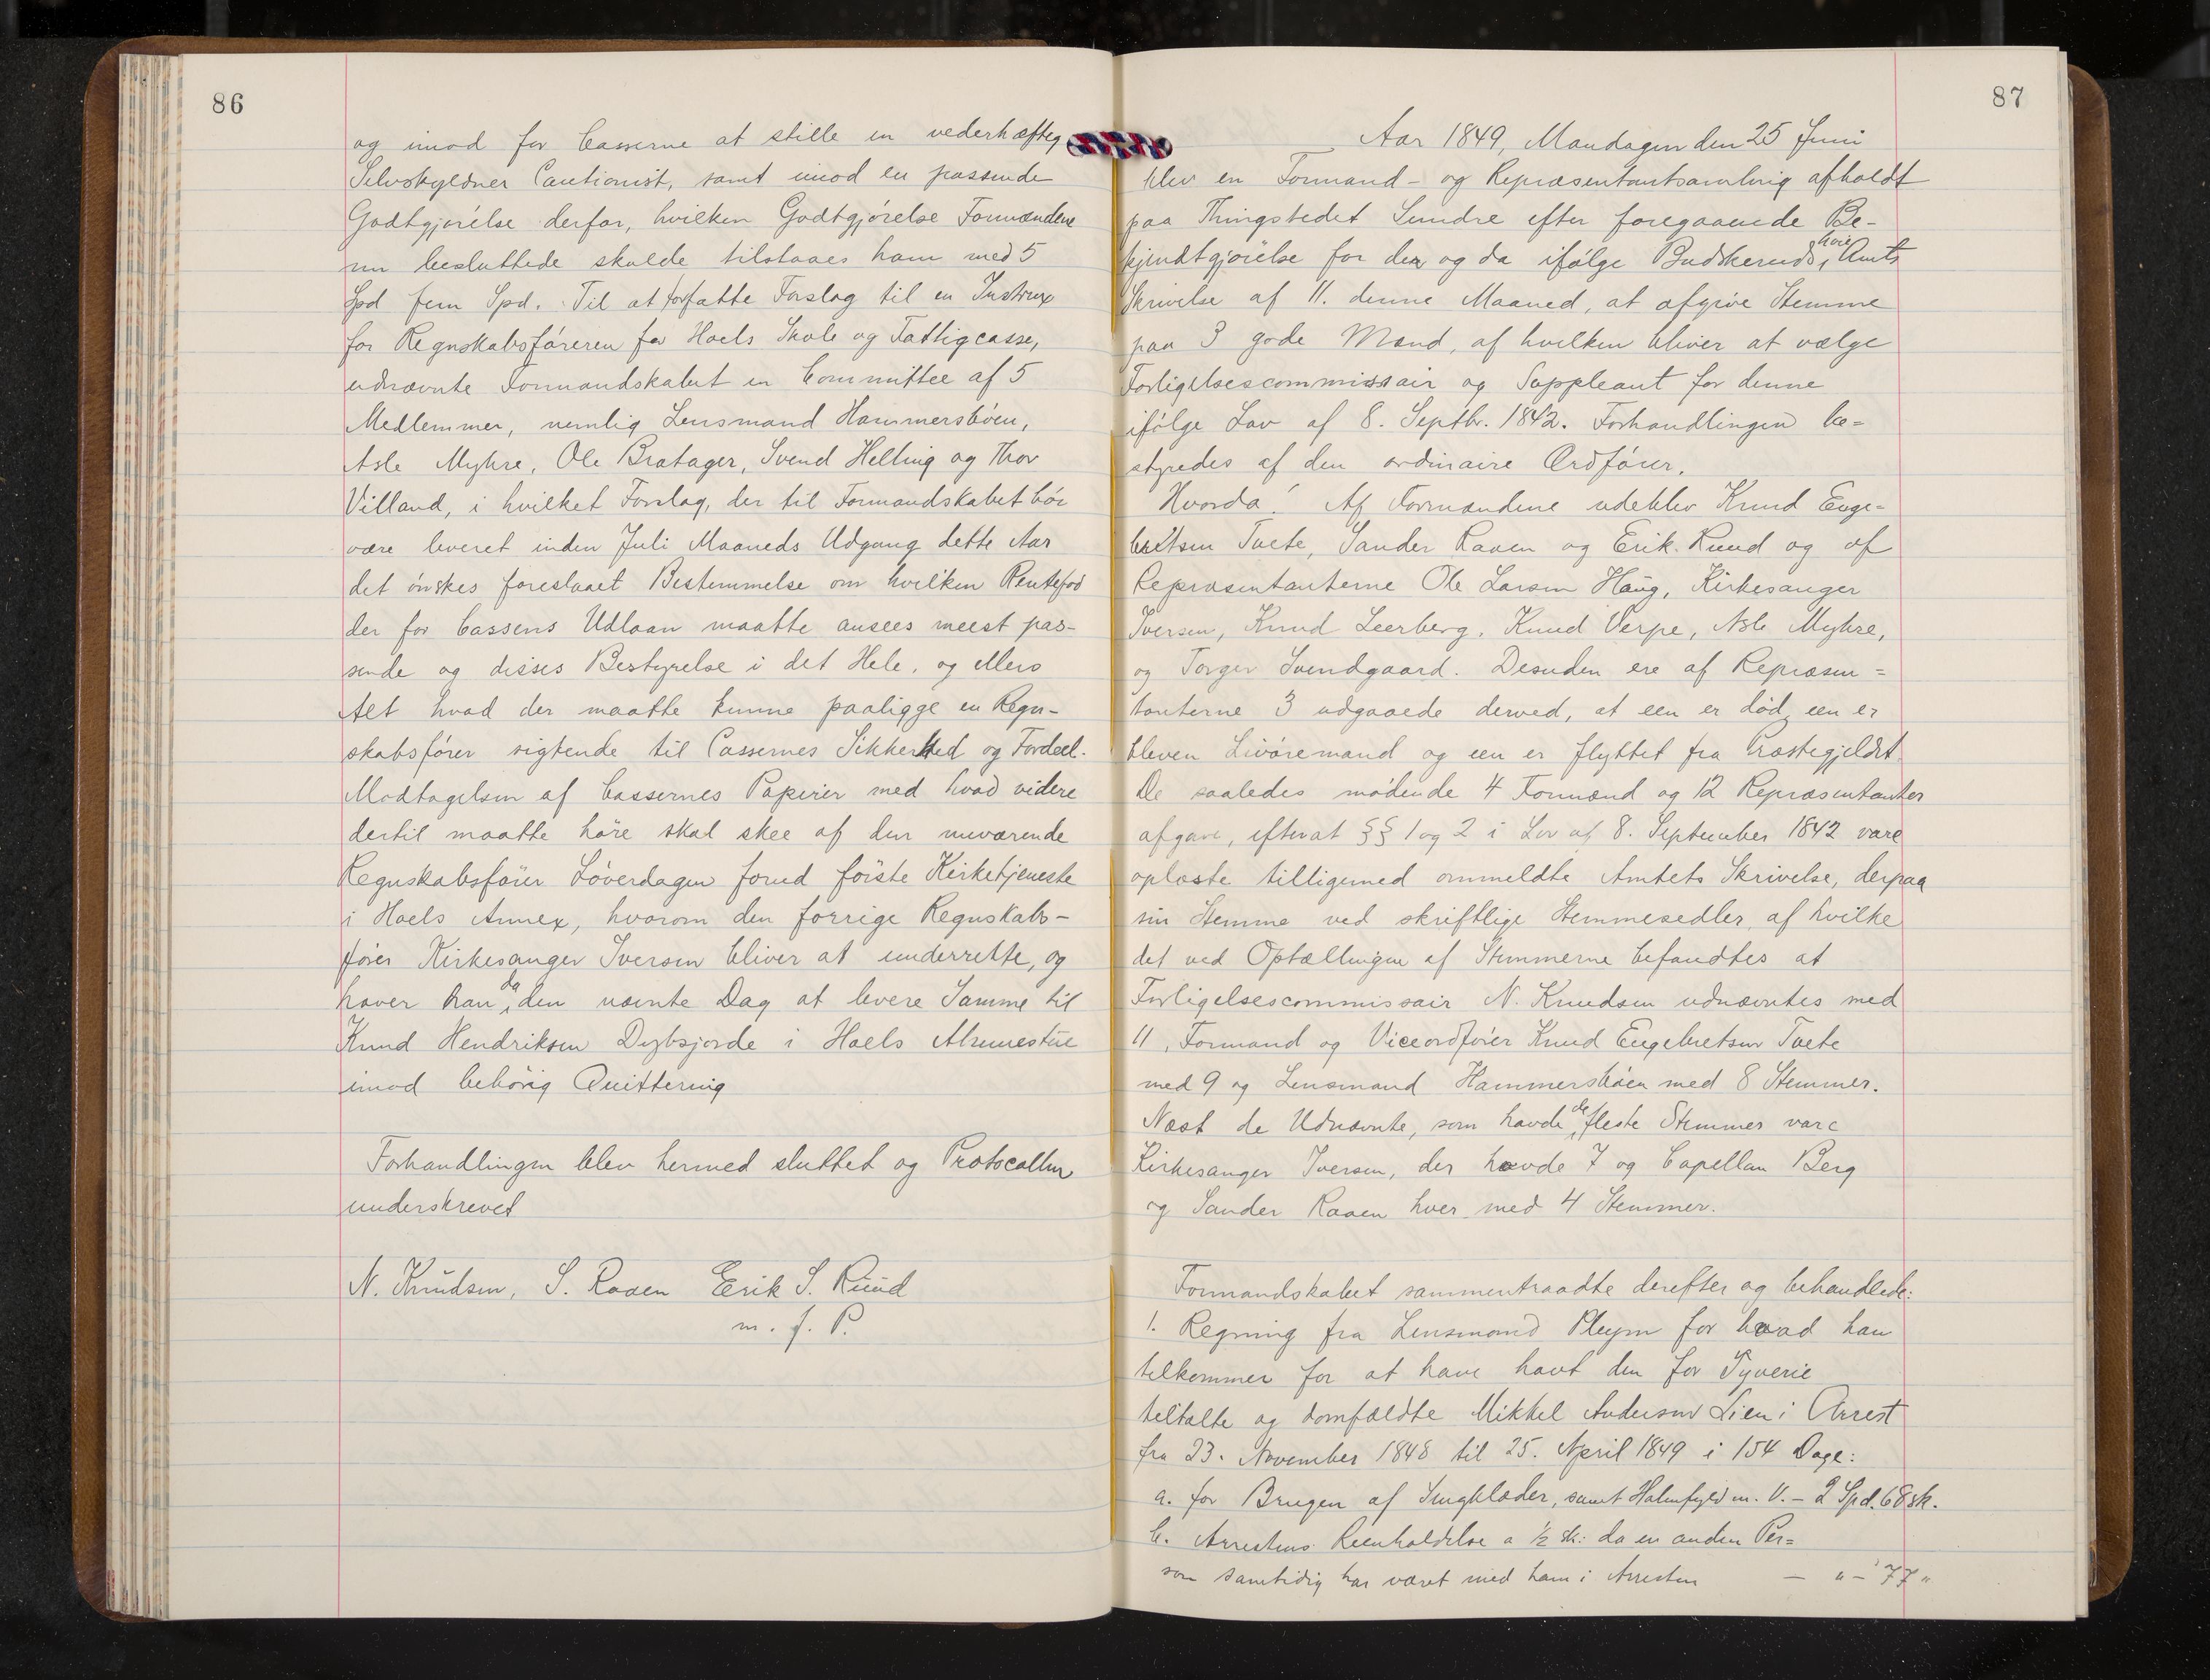 86
og imod for Casserne at stille en vederhæftig
Selvskyldner Cautionist, samt imod en passende
Godtgjörelse derfor, hvilken Godtgjörelse Formændene
nu besluttede skulde tilstaaes ham med 5
Spd fem Spd. Til at forfatte Forslag til en Instrux
for Regnskabsföreren for Hoels Skole og Fattigcasse,
udnævnte Formandskabet en Committee af 5
Medlemmer, nemlig Lensmand Hammersböen,
Asle Myhre, Ole Bratager, Svend Helling og Thor
Villand, i hvilket Forslag, der til Formandskabet bör
være leveret inden Juli Maaneds Udgang dette Aar
det önskes foreslaaet Bestemmelse om hvilken Rentefod
der for Cassens Udlaan maatte ansees meest pas-
sende og disses Bestyrelse i det Hele, og ellers
Alt hvad der maatte kunne paaligge en Regn-
skabsförer sigtende til Cassernes Sikkerhed og Fordeel.
Modtagelsen af Cassernes Papirer med hvad videre
dertil maatte höre skal skee af den nuværende
Regnskabsförer Löverdagen forud förste Kirketjeneste
i Hoels Annex, hvorom den forrige Regnskabs-
förer Kirkesanger Iversen bliver at underrette, og
haver han da den nævnte Dag at levere Samme til
Knud Hendriksen Dybsjorde i Hoels Almuestue
imod behörig Quittering
Forhandlingen blev hermed sluttet og Protocollen
underskrevet
N. Knudsen, S. Raaen Eerik S. Ruud
m. f. P.
87
Aar 1849, Mandagen den 25 Juni
blev en Formand- og Repræsentantsamling afholdt
paa Thingstedet Sundre efter foregaaende Be-
kjendtgjörelse for der og da ifölge Buskeruds höie Amts
Skrivelse af 11. denne Maaned, at afgive Stemme
paa 3 gode Mænd, af hvilken bliver at vælge
Forligelsescommissair og Suppleant for denne
ifölge Lov af 8. Septbr. 1842. Forhandlingen be=
styredes af den ordinaire Ordförer.
Hvorda! Af Formændene udeblev Knud Enge=
bretsen Tvete, Sander Raaen og Erik Ruud og af
Repræsentanterne Ole Larsen Haug, Kirkesanger
Iversen, Knud Leerberg, Knud Verpe, Asle Myhre,
og Torger Svendgaard. Desuden ere af Repræsen=
tanterne 3 udgaaede derved, at een er död, een er
bleven Livöremand og een er flyttet fra Præstegjeldet.
De saaledes mödende 4 Formænd og 12 Repræsentanter
afgave, efterat §§ 1 og 2 i Lov af 8. September 1842 vare
oplæste tilligemed ommeldte Amtets Skrivelse, derpaa
sin Stemme ved skriftlige Stemmesedler, af hvilke
det ved Optællingen af Stemmerne befandtes at
Forligelsescommissair N. Knudsen udnævntes med
11, Formand og Viceordförer Knud Engebretsen Tvete
med 9 og Lensmand Hammersböen med 8 Stemmer.
Næst de Udnævnte, som havde de fleste Stemmer vare
Kirkesanger Iversen, der havde 7 og Capellan Berg
og Sander Raaen hver med 4 Stemmer.
Formandskabet sammentraadte derefter og behandlede:
1. Regning fra Lensmand Pleym for hvad han
tilkommer for at have havt den for Tyverie
tiltalte og domfældte Mikkel Andersen Lien i Arrest
fra 23. November 1848 til 25. April 1849 i 154 Dage:
a. for Brugen af Sengklæder, samt Halmfyld m. V. – 2 Spd. 68 sk.
b. Arrestens Reenholdelse a ½ sk: da en anden Per=
son samtidig har været med ham i Arresten – " – 77 "